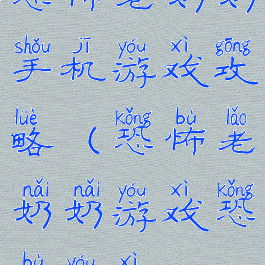 shǒu jī yóu xì gōng
手机游戏攻
lüè kǒng bù lǎo
略（恐怖老
nǎi nǎi yóu xì kǒng
奶奶游戏恐
bù yóu xì